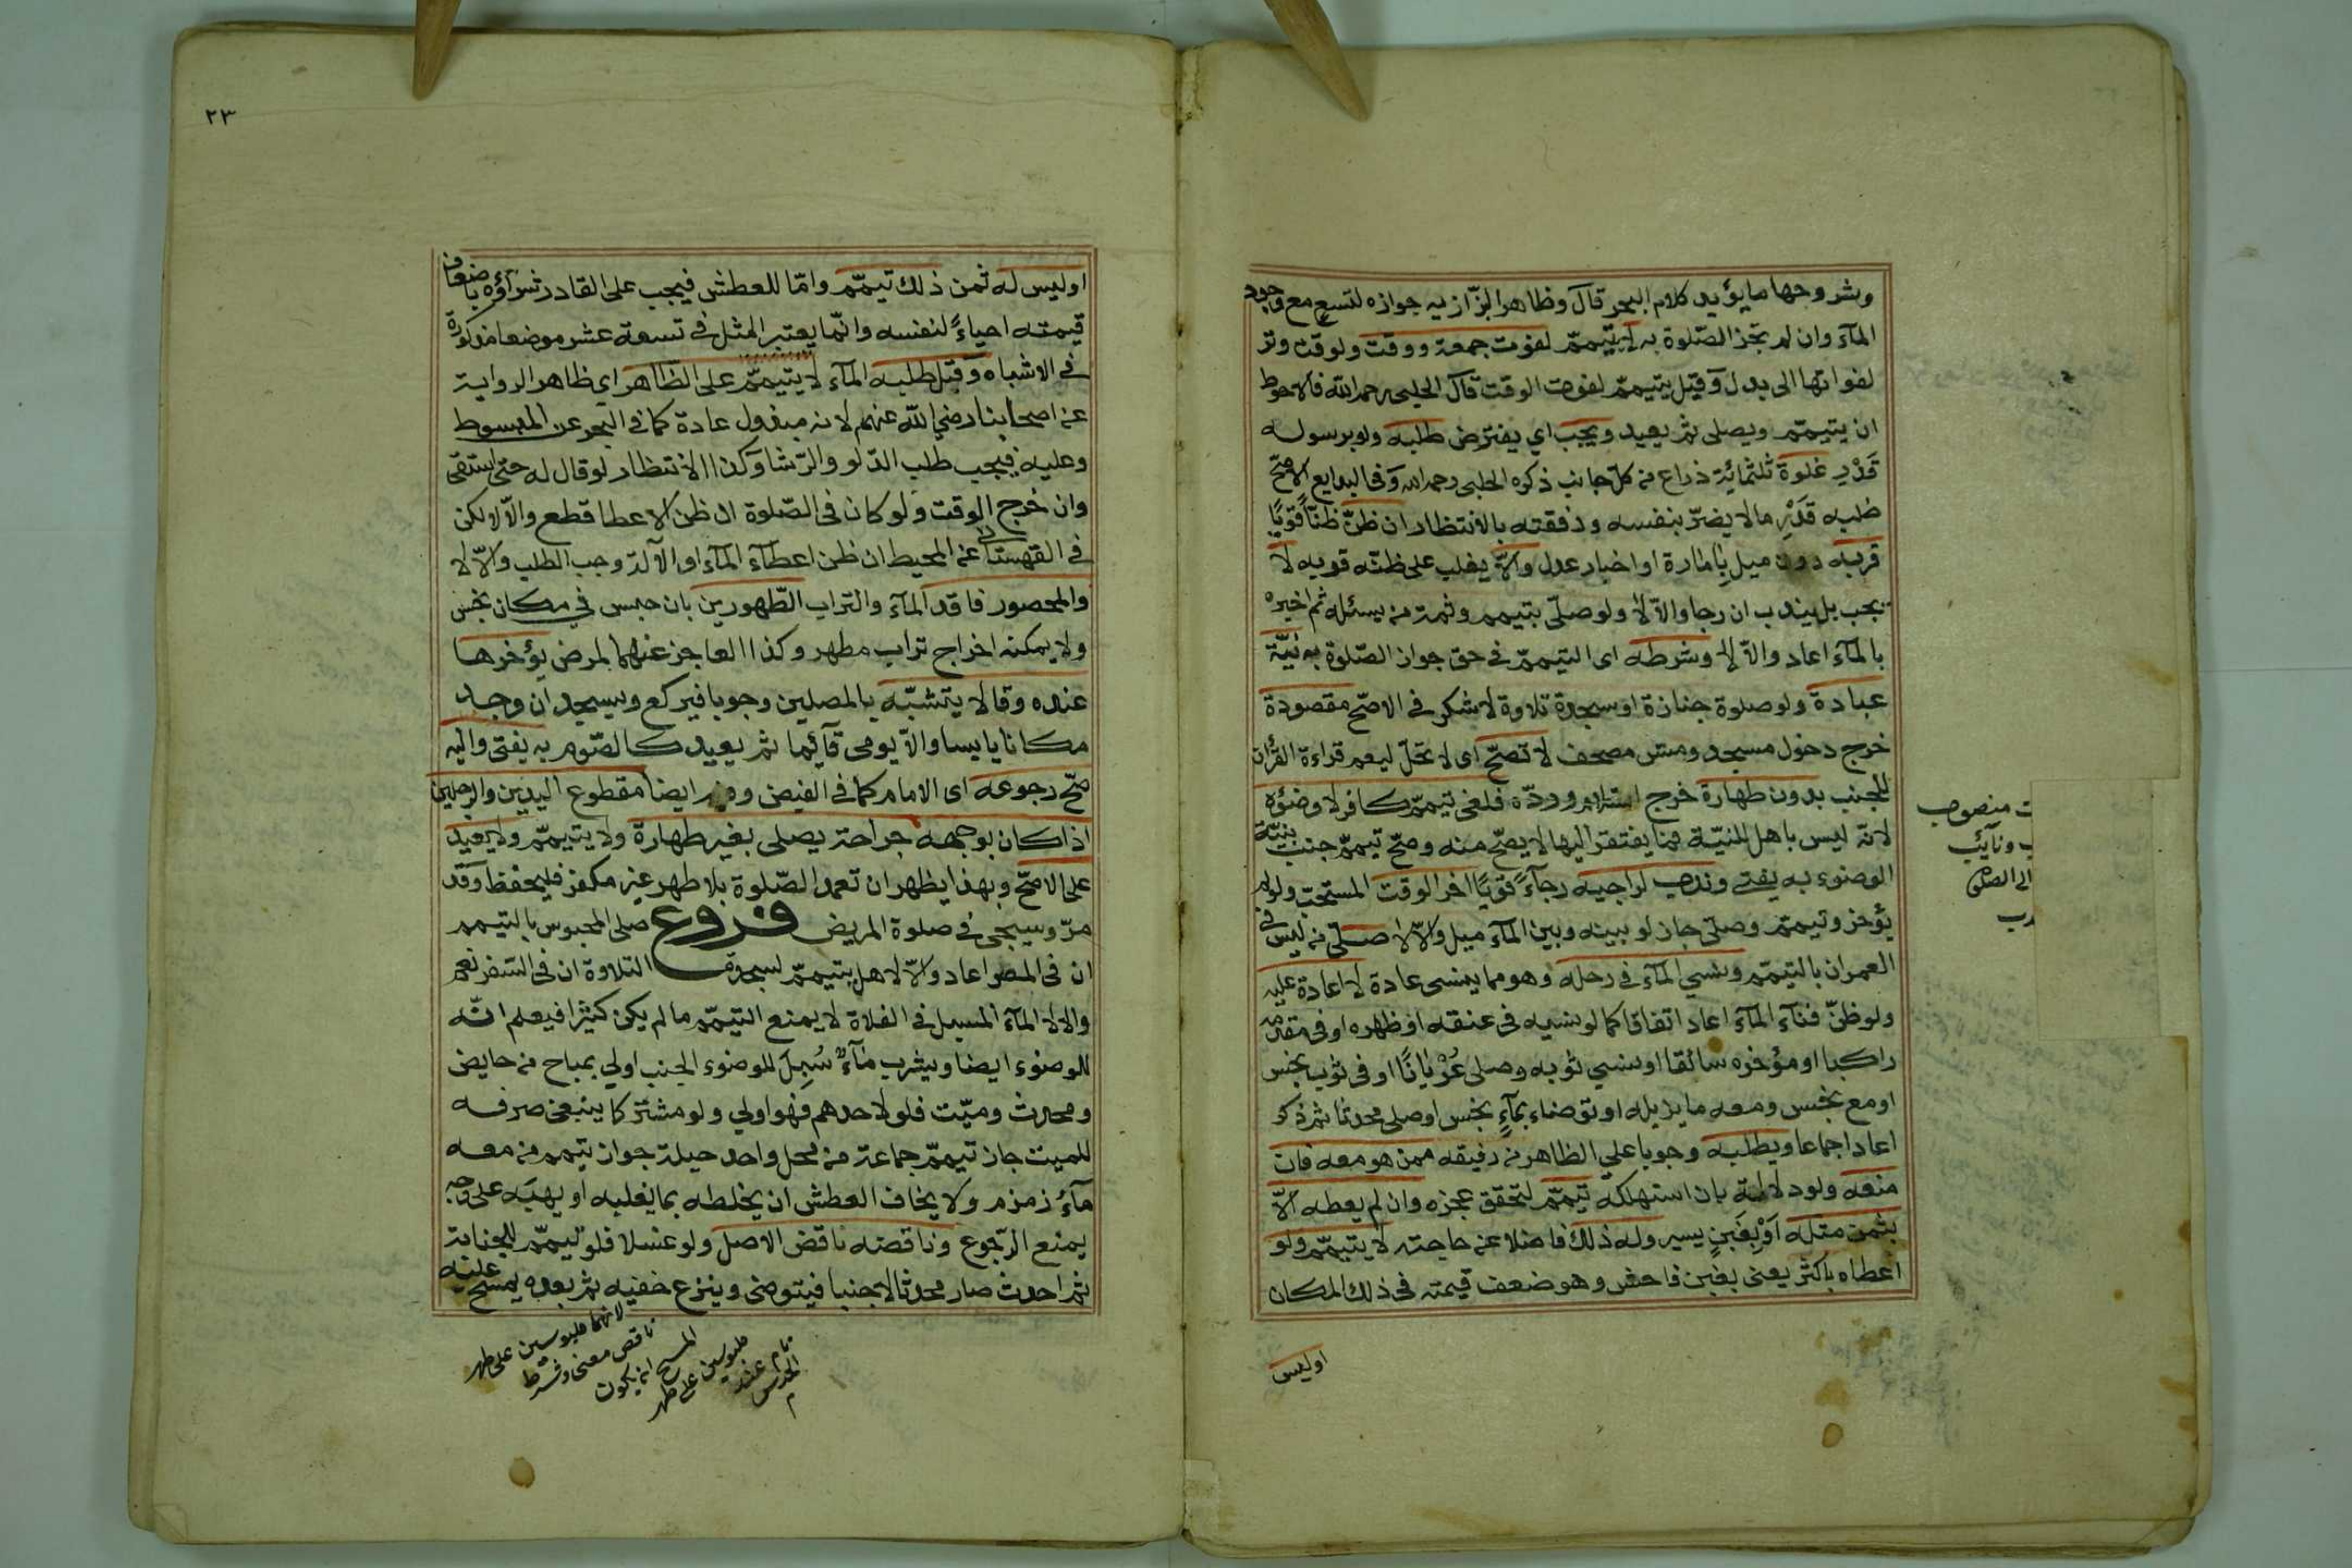 وشروحها ما يؤيد كلام البحر قال وظاهر البزازيه جوازه لتسع مع وجود
المآء وان لم تجز الصّلوة به لا يتيمّم لفوت جمعة ووقت ولو وقت وتر
لفواتها الى بدل وقيل يتيمّم لفوت الوقت قال الحلبى رحمه الله فالاحوط
ان يتيمّم ويصلى ثم يعيد ويجب اي يفترض طلبه ولو برسوله
قدْرِ غلوة ثلثمائة ذراع من كلّ جانب ذكره الحلبى رحمه الله وفى البدايع الاصحّ
طلبه قدْرِ ما لا يضرّ بنفسه ورفقته بالانتظار ان ظنّ ظنًّا قويًّا
قربه دون ميل بامارة او اخبار عدل والّا يغلب على ظنّه قربه لا
يجب بل يندب ان رجا والّا لا ولو صلّى بتيمم وثمة من يسئله ثم اخبره
بالمآء اعاد والّا لا وشرطه اى التيمّم فى حق جواز الصّلوة به نيّة
عبادة ولو صلوة جنازة او سجدة تلاوة لا شكر فى الاصحّ مقصودة
خرج دخول مسجد ومسّ مصحف لا تصحّ اى لا تحلّ ليعم قراءة القرأن
للجنب بدون طهارة خرج السّلام وردّه فلغى تيمّم كافر لا وضؤه
لانّه ليس باهل للنيّة فما يفتقر اليها لا يصحّ منه وصحّ تيمّم جنب بنيّة
الوضوء به يفتى وندب لراجيه رجآءً قويًّا اخر الوقت المستحب ولو لم
يؤخر وتيمّم وصلّى جاز لو بينه وبين المآء ميل والّا لا صلّى من ليس فى
العمران بالتيمّم ونسي المآء فى رحله وهو مما ينسى عادة لا اعادة عليه
ولو ظنّ فنآء المآء اعاد اتفاقا كما لو نسيه فى عنقه او ظهره او فى مقدمه
راكبا او مؤخره سائقا او نسي ثوبه وصلى عُرْيانًا او فى ثوب نجس
او مع نجس ومعه ما يزيله او توضاء بمآءٍ نجس او صلى محدثا ثم ذكر
اعاد اجماعا ويطلبه وجوبا على الظاهر من رفيقه ممن هو معه فان
منعه ولو دلالة بان استهلكه تيمّم لتحقق عجزه وان لم يعطه الّا
بثمن مثله أوْ بِغَبنٍ يسير وله ذلك فاضلا عن حاجته لا يتيمّم ولو
اعطاه باكثر يعنى بغبن فاحش وهو ضعف قيمته فى ذلك المكان
اوليس
ت منصوب
ب ونآئب
الى الصلوة
٢٣
اوليس له ثمن ذلك تيمّم وامّا للعطش فيجب على القادر شرآؤه باضعاف
قيمته احياءً لنفسه وانّما يعتبر المثل فى تسعة عشر موضعا مذكورة
فى الاشباه وقبل طلبه المآء لا يتيمّم على الظّاهر اى ظاهر الرواية
عن اصحابنا رضي الله عنهم لانه مبذول عادة كما فى البحر عن المبسوط
وعليه فيجب طلب الدّلو والرّشا وكذا الانتظار لو قال له حتى استقى
وان خرج الوقت ولو كان فى الصّلوة ان ظن الاعطا قطع والّا لا لكن
فى القهستانى عن المحيط ان ظن اعطآء المآء او الآلة وجب الطلب والّا لا
والمحصور فاقد المآء والتراب الطّهورين بان حبس في مكان نجس
ولا يمكنه اخراج تراب مطهر وكذا العاجز عنهما لمرض يؤخرها
عنده وقالا يتشبّه بالمصلين وجوبا فيركع ويسجد ان وجد
مكانا يابسا والّا يومى قآئما ثم يعيد كالصّوم به يفتى واليه
صحّ رجوعه اى الامام كما فى الفيض وفيه ايضا مقطوع اليدين والرجلين
اذا كان بوجهه جراحة يصلى بغير طهارة ولا يتيمّم ولا يعيد
على الاصحّ وبهذا يظهر ان تعمد الصّلوة بلا طهر غير مكفر فليحفظ وقد
مرّ وسيجئ فى صلوة المريض فروع صلى المحبوس بالتيمم
ان فى المصر اعاد والّا لا هل يتيمّم لسجدة التلاوة ان فى السّفر نعم
والا لا المآء المسبل فى الفلاة لا يمنع التيمّم ما لم يكن كثيرا فيعلم انّه
للوضوء ايضا ويشرب مآءٌ سُبِلَ للوضوء الجنب اولي بمباح من حايض
ومحدث وميّت فلو لاحدهم فهو اولي ولو مشتركا ينبغى صرفه
للميت جاز تيمّم جماعة من محل واحد حيلة جواز تيمم من معه
مآءُ زمزم ولا يخاف العطش ان يخلطه بما يغلبه او يهبَه على وجه
يمنع الرّجوع وناقضه ناقض الاصل ولو غسلا فلو تيمّم للجنابة
ثم احدث صار محدثا لا جنبا فيتوضى وينزع خفيه ثم بعده يمسح عليه
لانهما ملبوسين على طهر
ناقص معنى وشرط
المسح ان يكون
ملبوسين على طهر
تام عند
الحدث
م